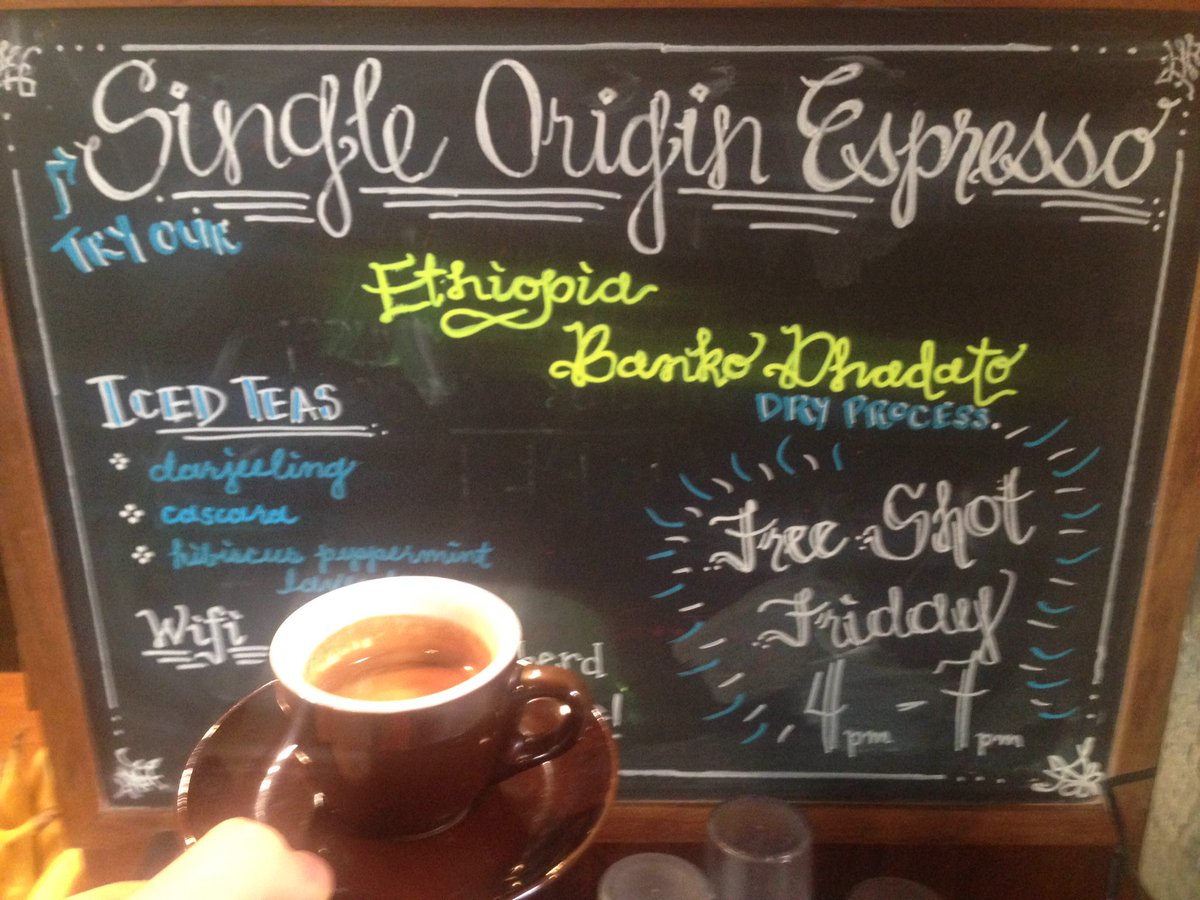 Single Origin Espresso
TRY OUR
Ethiopia
Banko Dhadato
DRY PROCESS.
ICED TEAS
darjeeling
cascara
hibiscus peppermint
Wifi
Free Shot
Friday
4pm - 7pm